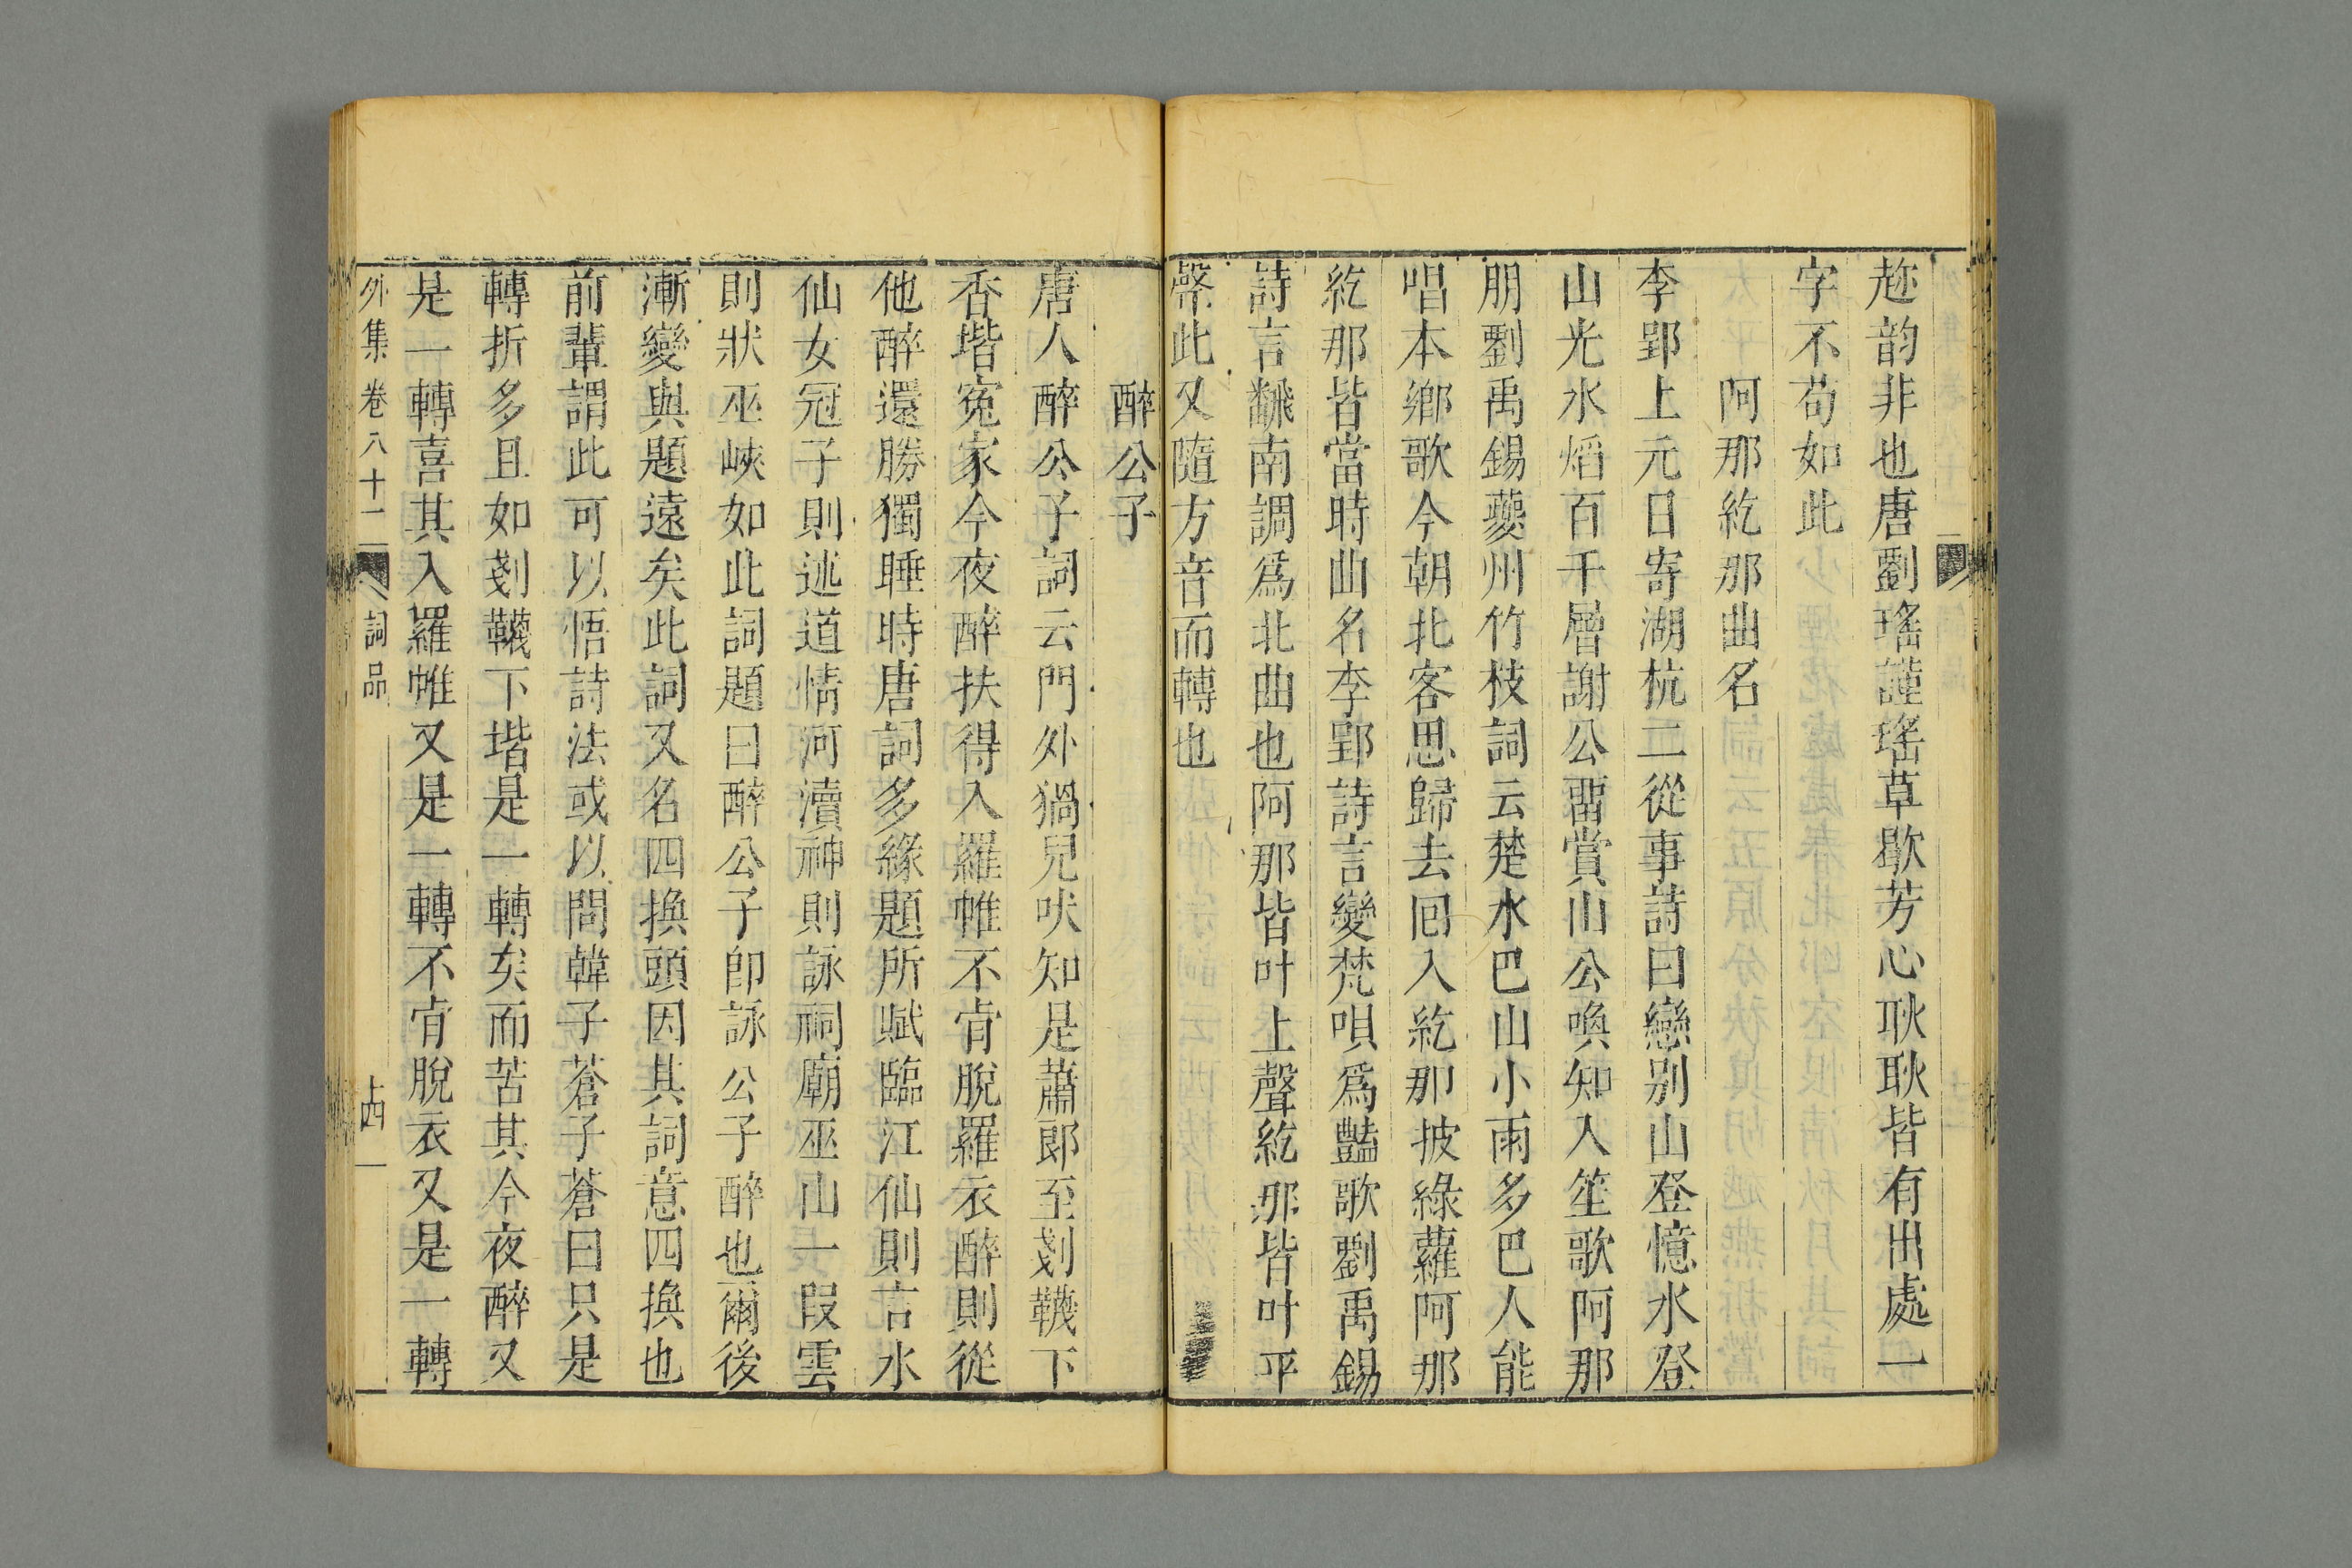 趂韵非也唐劉瑤謹瑤草歇芳心耿耿皆有出處一
字不苟如此
阿那紇那曲名
李郢上元日寄湖杭二從事詩曰戀別山登憶水登
山光水熖百千層謝公畱賞山公喚知入笙歌阿那
朋劉禹錫夔州竹枝詞云楚水巴山小雨多巴人能
唱本鄉歌今朝北客思歸去囘入紇那披綠蘿阿那
紇那皆當時曲名李郢詩言變梵唄爲豔歌劉禹錫
詩言翻南調爲北曲也阿那皆叶上聲紇那皆叶平
聲此又隨方音而轉也
醉公子
唐人醉公子詞云門外猧兒吠知是蕭郞至剗韈下
香堦寃家今夜醉扶得入羅帷不肯脫羅衣醉則從
他醉還勝獨睡時唐詞多緣題所賦臨江仙則言水
仙女冠子則述道情河瀆神則詠祠廟巫山一叚雲
則狀巫峽如此詞題曰醉公子卽詠公子醉也爾後
漸變與題遠矣此詞又名四換頭因其詞意四換也
前輩謂此可以悟詩法或以問韓子蒼子蒼曰只是
轉折多且如剗韈下堦是一轉矣而苦其今夜醉又
是一轉喜其入羅帷又是一轉不肯脫衣又是一轉
外集 卷八十二 詞品 十四